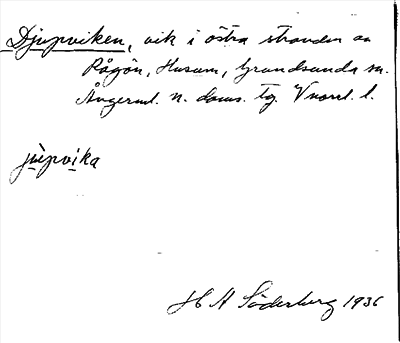 Djupviken, vik i östra stranden av
Rågön, Husum, Grundsunda sn.
Ångerml. n. doms. tg. Vnorrl. l.
jùpvika
H A Söderberg 1936